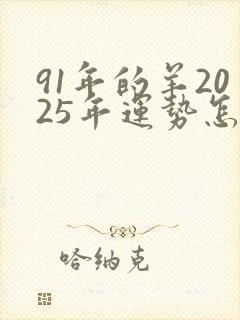 91年的羊20
25年運势怎
哈纳克